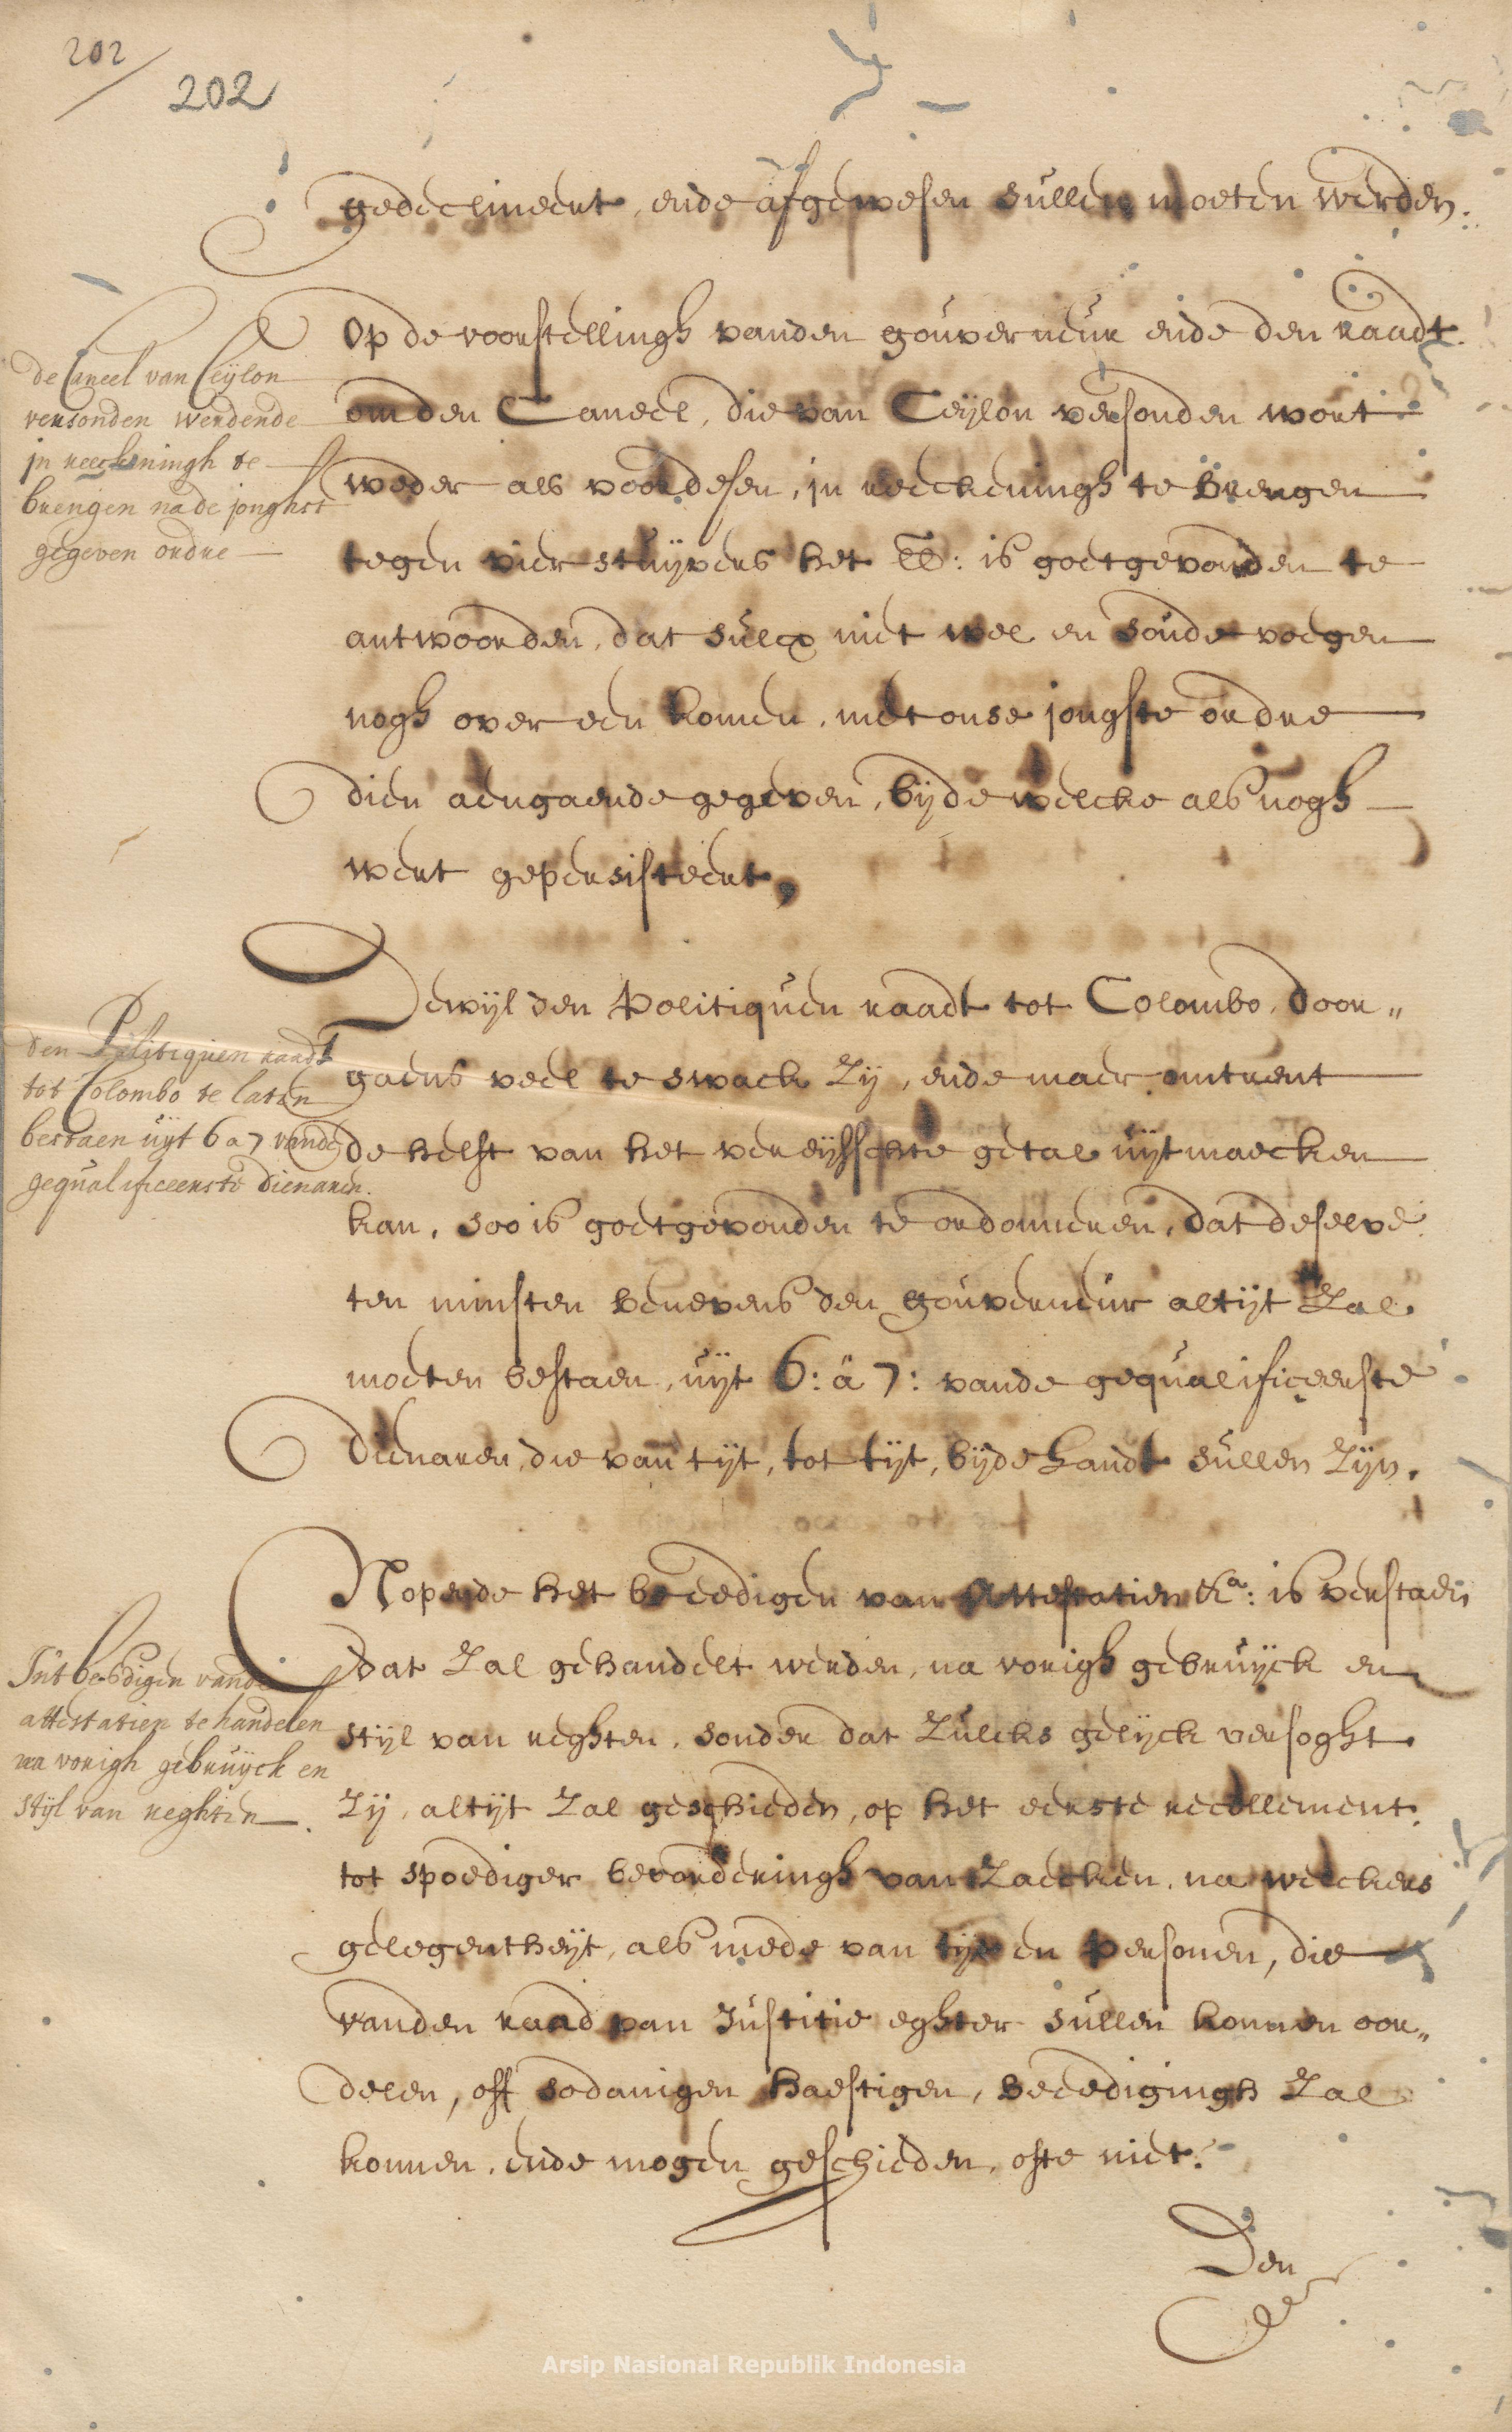 202
202
gedeclineert, ende afgewesen sullen moeten werden.
de Caneel van Ceijlon
versonden werdende
in reeckeningh te
brengen na de jonghst
gegeven ordre
Op de voorstellingh vanden gouverneur ende den raadt.
om den Caneel, die van Ceijlon versonden wort
weder als voor desen, in reeckeningh te brengen
tegen vier stuijvers het lb: is goetgevonden te
antwoorden, dat sulcx niet wel en soude voegen
nogh over een komen, met onse jongste ordre
dien aengaende gegeven, bij de welcke als nogh
wert gepersisteert,
den Politiquen raadt
tot Colombo te laten
bestaen uijt 6 a 7 vande
gequalificeerste dienaren.
Dewijl den Politiquen raadt tot Colombo, door„
gaens veel te swack zij, ende maer omtrent
de helft van het vereijsschte getal uijtmaecken
kan, soo is goetgevonden te ordonneren, dat deselve
ten minsten benevens den gouverneur altijt zal
moeten bestaen, uijt 6: â 7: vande gequalificeerste
dienaren, die van tijt, tot tijt, bij de handt sullen zijn.
Int beëdigen vande
attestatien te handelen
na vorigh gebruijck en
stijl van reghten.
Nopende het beeedigen van Attestatien &a: is verstaen
dat zal gehandelt werden, na vorigh gebruijck en
stijl van reghten, sonder dat zulcks gelijck versoght
zij, altijt zal geschieden, op het eerste recollement,
tot spoediger bevorderingh van zaecken, na welckers
gelegentheijt, als mede van tijt en personen, die
vanden raad van Justitie eghter sullen konnen oor„
delen, off sodanigen haestigen, beeedigingh zal
konnen, ende mogen geschieden, ofte niet.
Den
Arsip Nasional Republik Indonesia